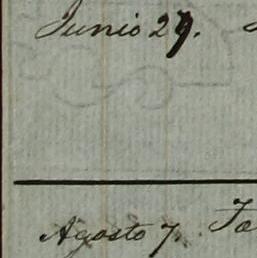 Junio 29.
Agosto 7.